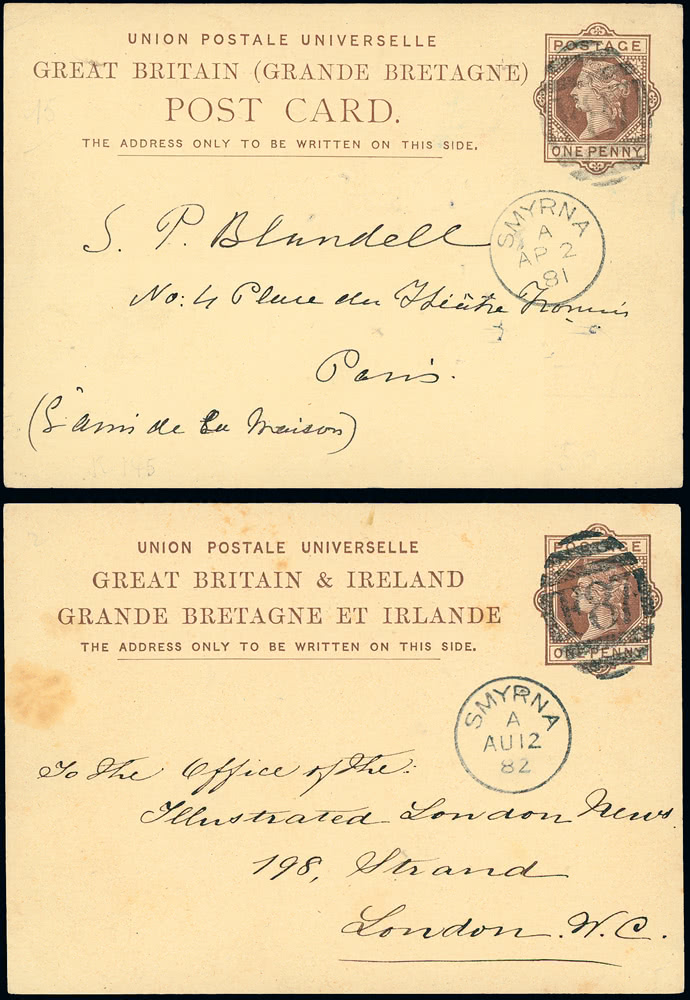 UNION POSTALE UNIVERSELLE
GREAT BRITAIN (GRANDE BRETAGNE)
POST CARD.
THE ADDRESS ONLY TO BE WRITTEN ON THIS SIDE.
POSTAGE
ONE PENNY
SMYRNA
A
AP 2
81
S. P. Blundell
No: 4 Place du Théâtre
Paris.
(L'ami de la Maison)
UNION POSTALE UNIVERSELLE
GREAT BRITAIN & IRELAND
GRANDE BRETAGNE ET IRLANDE
THE ADDRESS ONLY TO BE WRITTEN ON THIS SIDE.
POSTAGE
ONE PENNY
F87
SMYRNA
A
AU 12
82
To the Office of the:
Illustrated London News.
198, Strand
London. W.C.